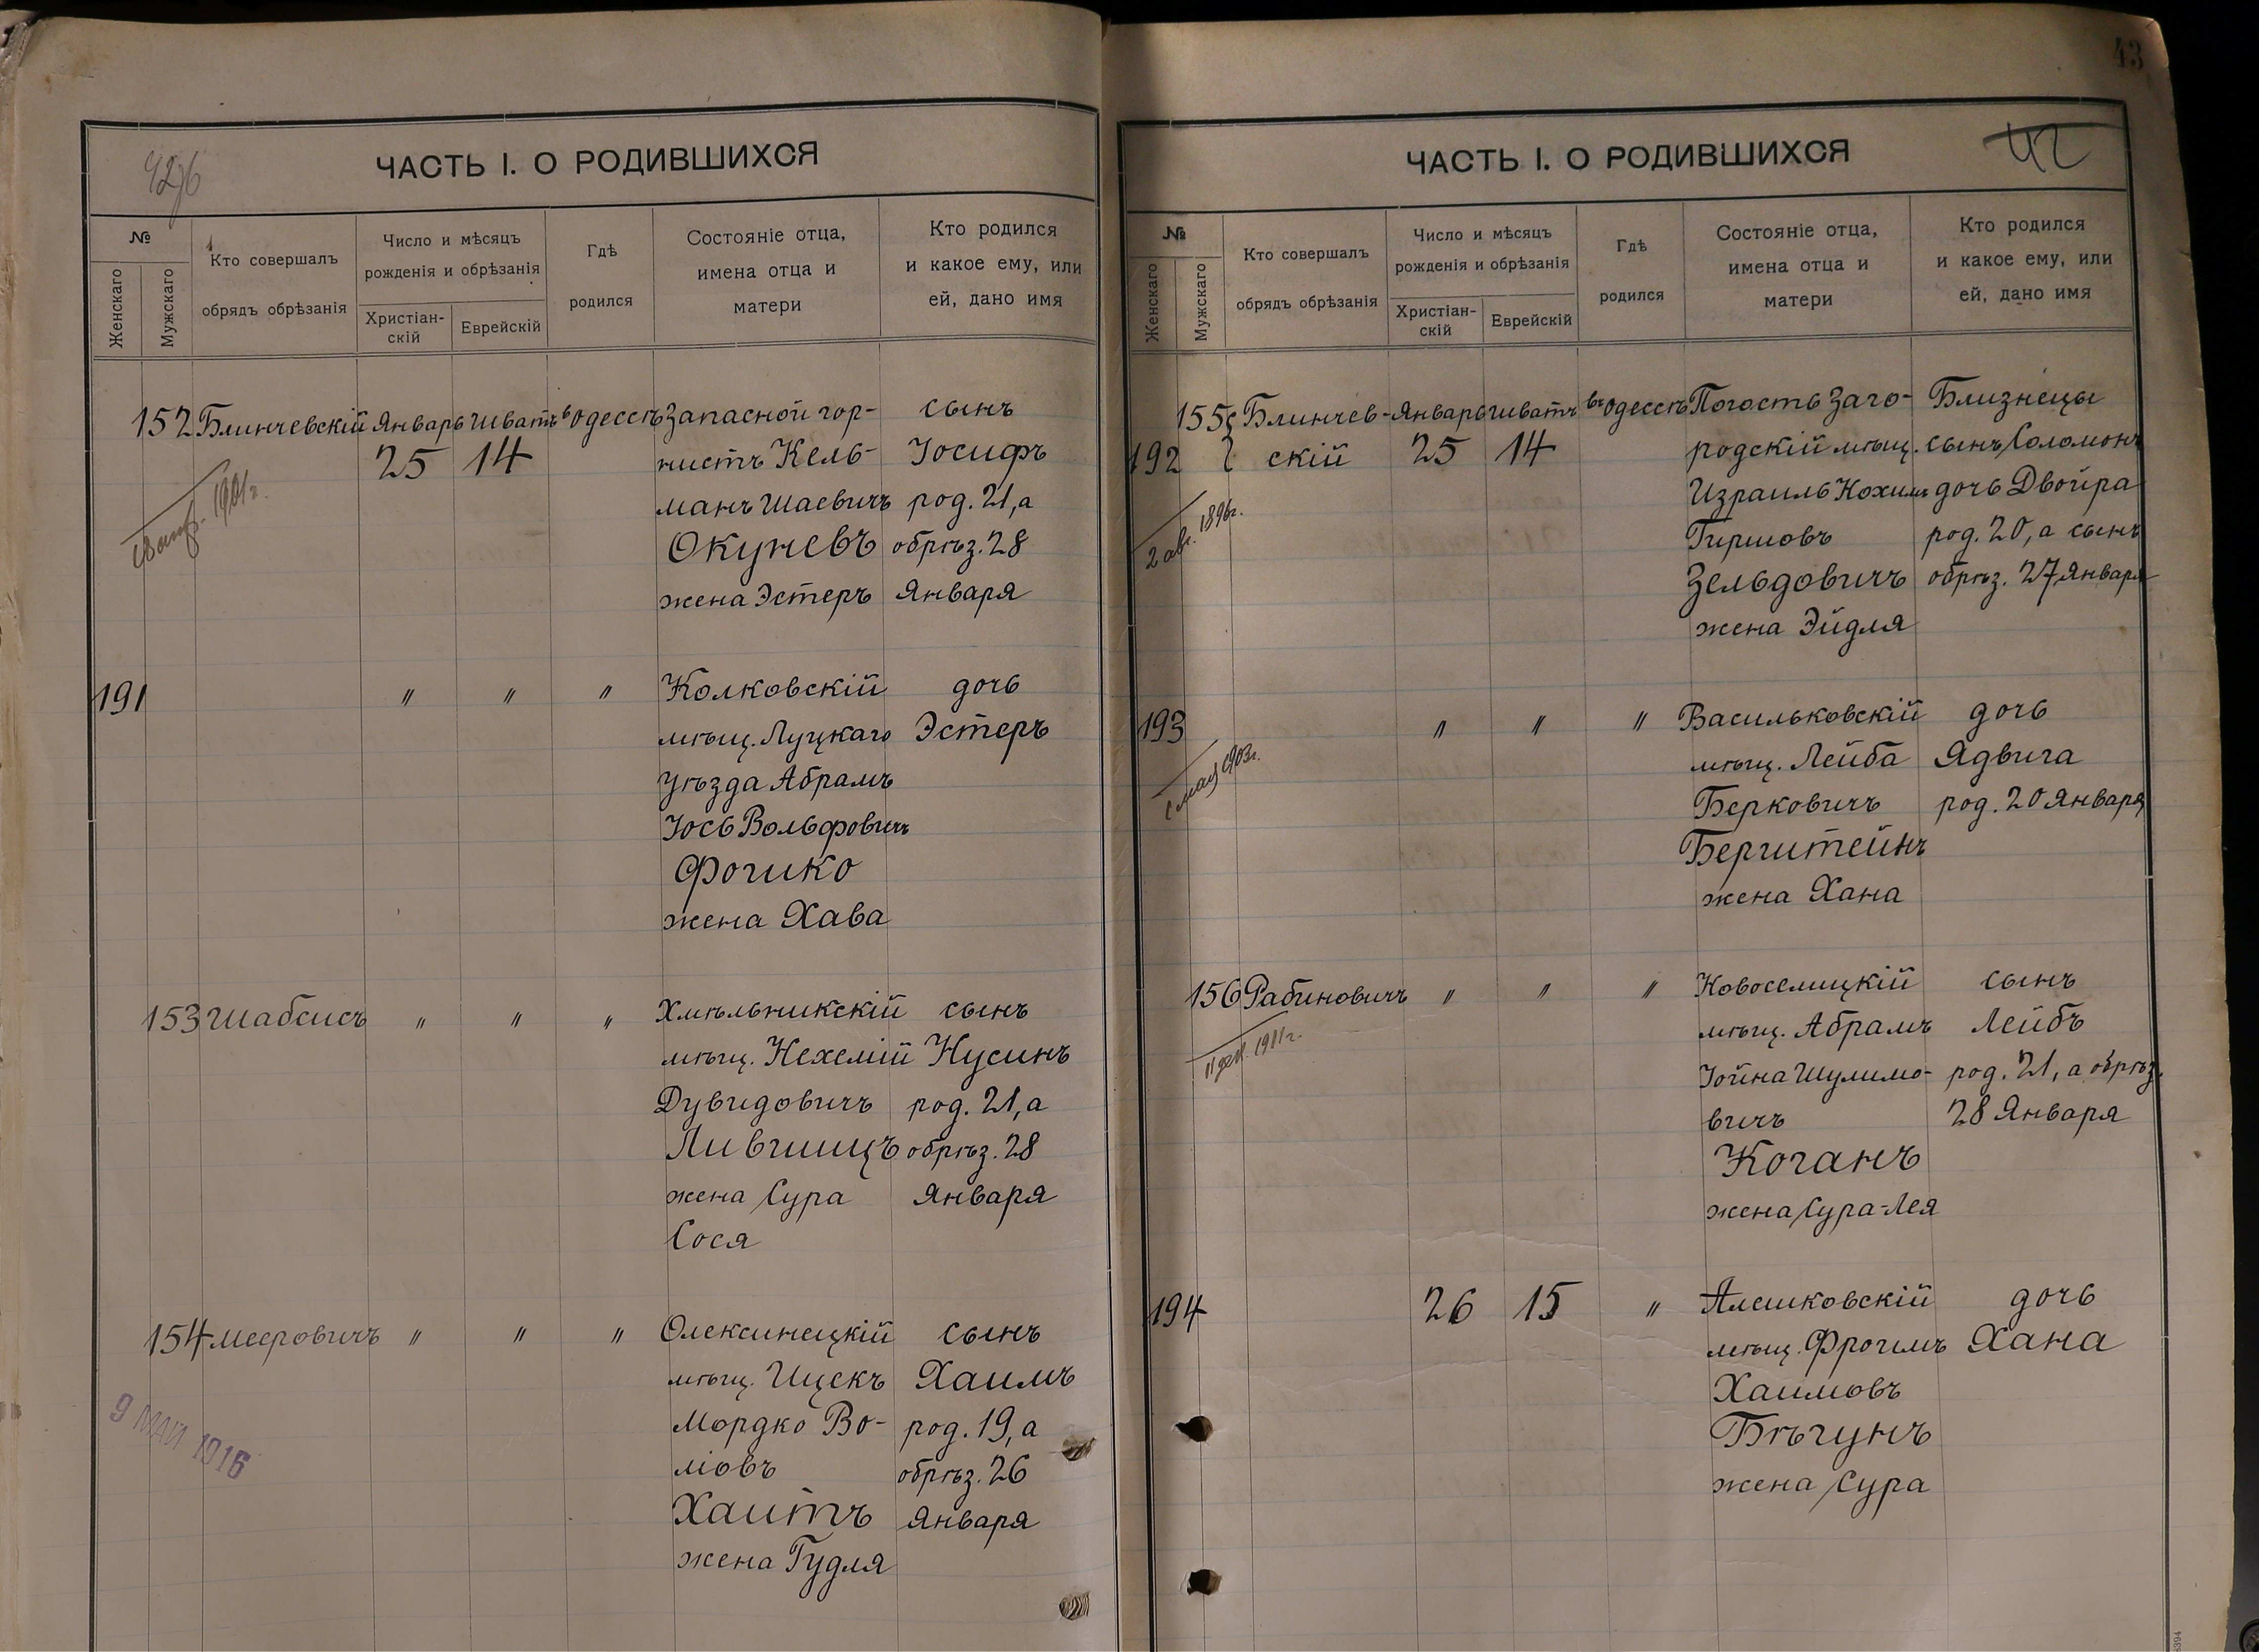 42об
ЧАСТЬ I. О РОДИВШИХСЯ
№
Женскаго
Мужскаго
Кто совершалъ
обрядъ обрѣзанія
Число и мѣсяцъ
рожденія и обрѣзанія
Христіан-
скій
Еврейскій
Гдѣ
родился
Состояніе отца,
имена отца и
матери
Кто родился
и какое ему, или
ей, дано имя
152 Блинчевскій Январь Шватъ в Одессѣ Запасной гор- сынъ
25 14 нистъ Кель- Іосифъ
манъ Шаевичъ род. 21, а
Окуневъ обрѣз. 28
жена Эстеръ Января
1901 г.
191 " " " Колковскій дочь
мѣщ. Луцкаго Эстеръ
уѣзда Абрамъ
Іось Вольфовичъ
Фошко
жена Хава
153 Шабсисъ " " " Хмѣльникскій сынъ
мѣщ. Нехемій Нусинъ
Дувидовичъ род. 21, а
Лившицъ обрѣз. 28
жена Сура Января
Сося
154 Мееровичъ " " " Олексинецкій сынъ
мѣщ. Ицекъ Хаимъ
Мордко Во- род. 19, а
ліовъ обрѣз. 26
Хаитъ Января
жена Гудля
9 МАЙ 1916
43
42
ЧАСТЬ I. О РОДИВШИХСЯ
№
Женскаго
Мужскаго
Кто совершалъ
обрядъ обрѣзанія
Число и мѣсяцъ
рожденія и обрѣзанія
Христіан-
скій
Еврейскій
Гдѣ
родился
Состояніе отца,
имена отца и
матери
Кто родился
и какое ему, или
ей, дано имя
155 Блинчев- Январь Шватъ въ Одессѣ Погость Заго- Близнецы
192 скій 25 14 родскій мѣщ. сынъ Соломонъ
Израиль Нохимъ дочь Двойра
Гиршовъ род. 20, а сынъ
Зельдовичъ обрѣз. 27 Января
жена Эйдля
2 авг. 1896 г.
193 " " " Васильковскій дочь
мѣщ. Лейба Ядвига
Берковичъ род. 20 Января
Бергштейнъ
жена Хана
1 мая 1903 г.
156 Рабиновичъ " " " Новоселицкій сынъ
мѣщ. Абрамъ Лейбъ
Іойна Шулимо- род. 21, а обрѣз.
вичъ 28 Января
Коганъ
жена Сура-Лея
11 дек. 1911 г.
194 26 15 " Алешковскій дочь
мѣщ. Фроимъ Хана
Хаимовъ
Бѣгунъ
жена Сура